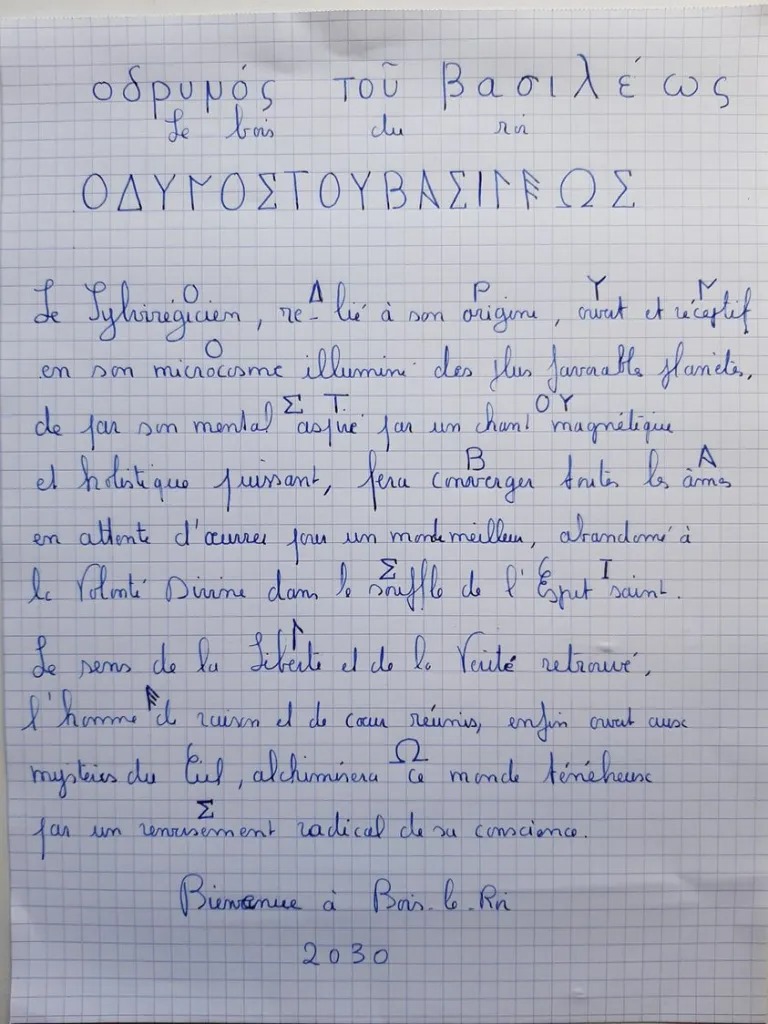 οδρυμός τοῦ βασιλέως
Le bois du roi
ΟΔΥΜΟΣΤΟΥΒΑΣΙΛΕΩΣ
Ο Δ Ρ Υ Μ
Le Sylvirégicien, re-lié à son origine, ouvert et réceptif
Ο
en son microcosme illuminé des plus favorable planètes,
Σ Τ ΟΥ
de par son mental aspiré par un chant magnétique
Β Α
et holistique puissant, fera converger toutes les âmes
en attente d'œuvrer pour un monde meilleur, abandonné à
Σ Ι
la Volonté Divine dans le souffle de l'Esprit saint.
Λ
Le sens de la Liberté et de la Vérité retrouvé,
Ε
l'homme de raison et de cœur réunis, enfin ouvert aux
Ω
mystères du Ciel, alchimisera ce monde ténébreux
Σ
par un renversement radical de sa conscience.
Bienvenue à Bois-le-Roi
2030